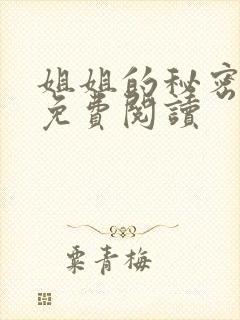 姐姐的秘密
免費閱讀
粟青梅